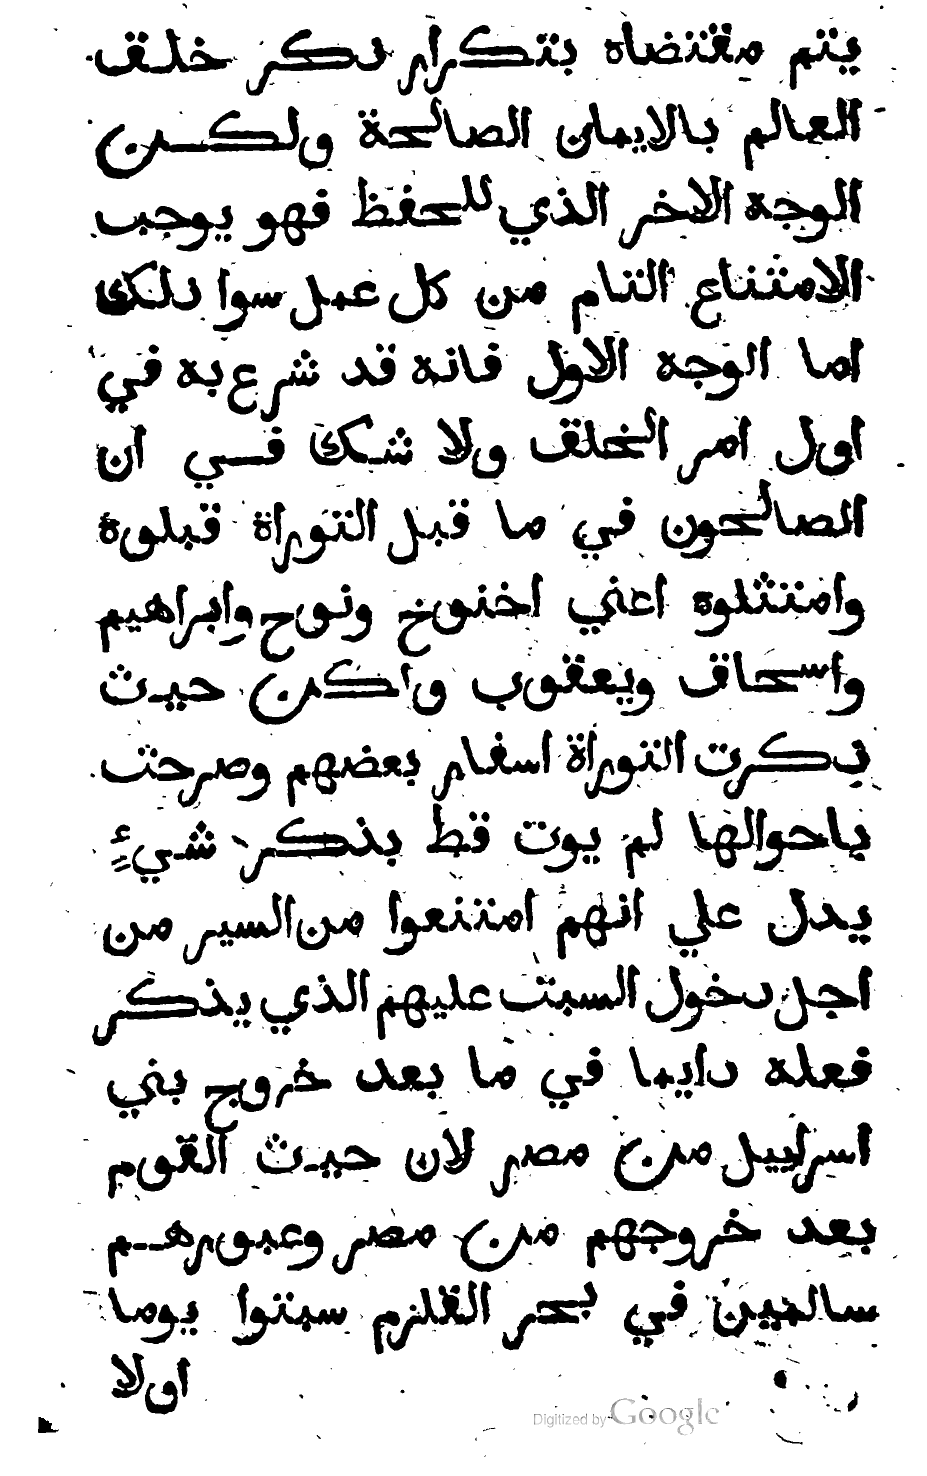 يتم مقتضاه بتكرار ذكر خلق
العالم بالايمان الصالحة ولكن
الوجه الاخر الذي للحفظ فهو يوجب
الامتناع التام من كل عمل سوا ذلك
اما الوجه الاول فانه قد شرع به في
اول امر الخلق ولا شك في ان
الصالحون في ما قبل التوراة قبلوه
وامتثلوه اعني اخنوخ ونوح وابراهيم
واسحاق ويعقوب ولكن حيث
ذكرت التوراة اسفار بعضهم وصرحت
باحوالها لم يوت قط بذكر شيءٍ
يدل علي انهم امتنعوا من السير من
اجل دخول السبت عليهم الذي يذكر
فعله دايما في ما بعد خروج بني
اسراييل من مصر لان حيث القوم
بعد خروجهم من مصر وعبورهم
سالمين في بحر القلزم سبتوا يوما
اولا
Digitized by Google